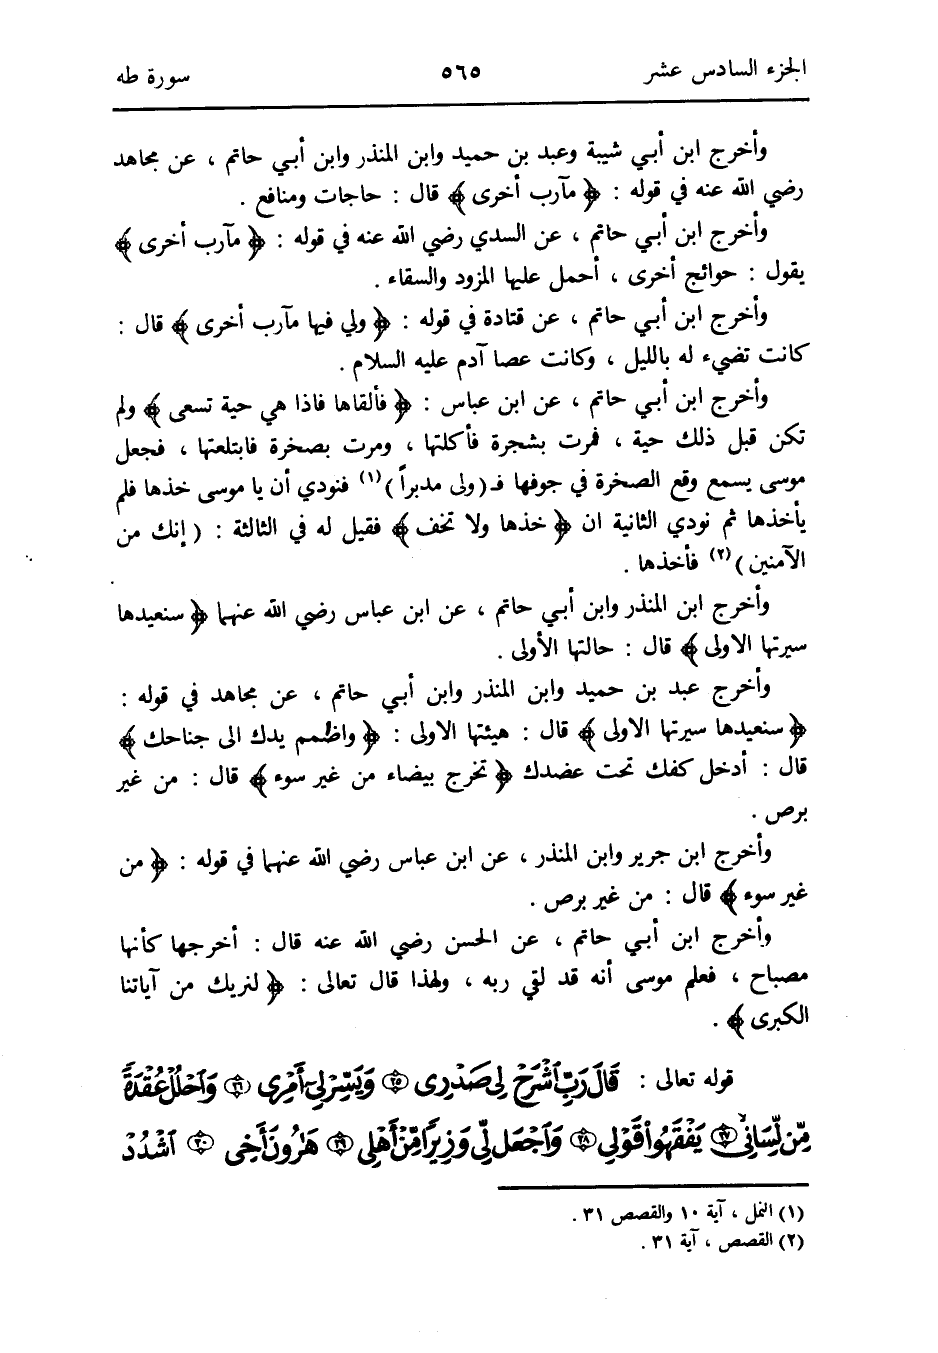 الجزء السادس عشر ٥٦٥ سورة طه
وأخرج ابن أبي شيبة وعبد بن حميد وابن المنذر وابن أبي حاتم ، عن مجاهد
رضي الله عنه في قوله : ﴿ مآرب أخرى ﴾ قال : حاجات ومنافع .
وأخرج ابن أبي حاتم ، عن السدي رضي الله عنه في قوله : ﴿ مآرب أخرى ﴾
يقول : حوائج أخرى ، أحمل عليها المزود والسقاء .
وأخرج ابن أبي حاتم ، عن قتادة في قوله : ﴿ ولي فيها مآرب أخرى ﴾ قال :
كانت تضيء له بالليل ، وكانت عصا آدم عليه السلام .
وأخرج ابن أبي حاتم ، عن ابن عباس : ﴿ فألقاها فاذا هي حية تسعى ﴾ ولم
تكن قبل ذلك حية ، فمرت بشجرة فأكلتها ، ومرت بصخرة فابتلعتها ، فجعل
موسى يسمع وقع الصخرة في جوفها فـ ( ولى مدبراً ) (١) فنودي أن يا موسى خذها فلم
يأخذها ثم نودي الثانية ان ﴿ خذها ولا تخف ﴾ فقيل له في الثالثة : ( إنك من
الآمنين ) (٢) فأخذها .
وأخرج ابن المنذر وابن أبي حاتم ، عن ابن عباس رضي الله عنهما ﴿ سنعيدها
سيرتها الاولى ﴾ قال : حالتها الأولى .
وأخرج عبد بن حميد وابن المنذر وابن أبي حاتم ، عن مجاهد في قوله :
﴿ سنعيدها سيرتها الاولى ﴾ قال : هيئتها الاولى : ﴿ واظمم يدك الى جناحك ﴾
قال : أدخل كفك تحت عضدك ﴿ تخرج بيضاء من غير سوء ﴾ قال : من غير
برص .
وأخرج ابن جرير وابن المنذر ، عن ابن عباس رضي الله عنهما في قوله : ﴿ من
غير سوء ﴾ قال : من غير برص .
وأخرج ابن أبي حاتم ، عن الحسن رضي الله عنه قال : أخرجها كأنها
مصباح ، فعلم موسى أنه قد لقي ربه ، ولهذا قال تعالى : ﴿ لنريك من آياتنا
الكبرى ﴾ .
قوله تعالى : قَالَ رَبِّ ٱشْرَحْ لِي صَدْرِى ٢٥ وَيَسِّرْ لِىٓ أَمْرِى ٢٦ وَٱحْلُلْ عُقْدَةً
مِّن لِّسَانِى ٢٧ يَفْقَهُوا۟ قَوْلِي ٢٨ وَٱجْعَل لِّي وَزِيرًا مِّنْ أَهْلِي ٢٩ هَٰرُونَ أَخِى ٣٠ ٱشْدُدْ
(١) النمل ، آية ١٠ والقصص ٣١ .
(٢) القصص ، آية ٣١ .